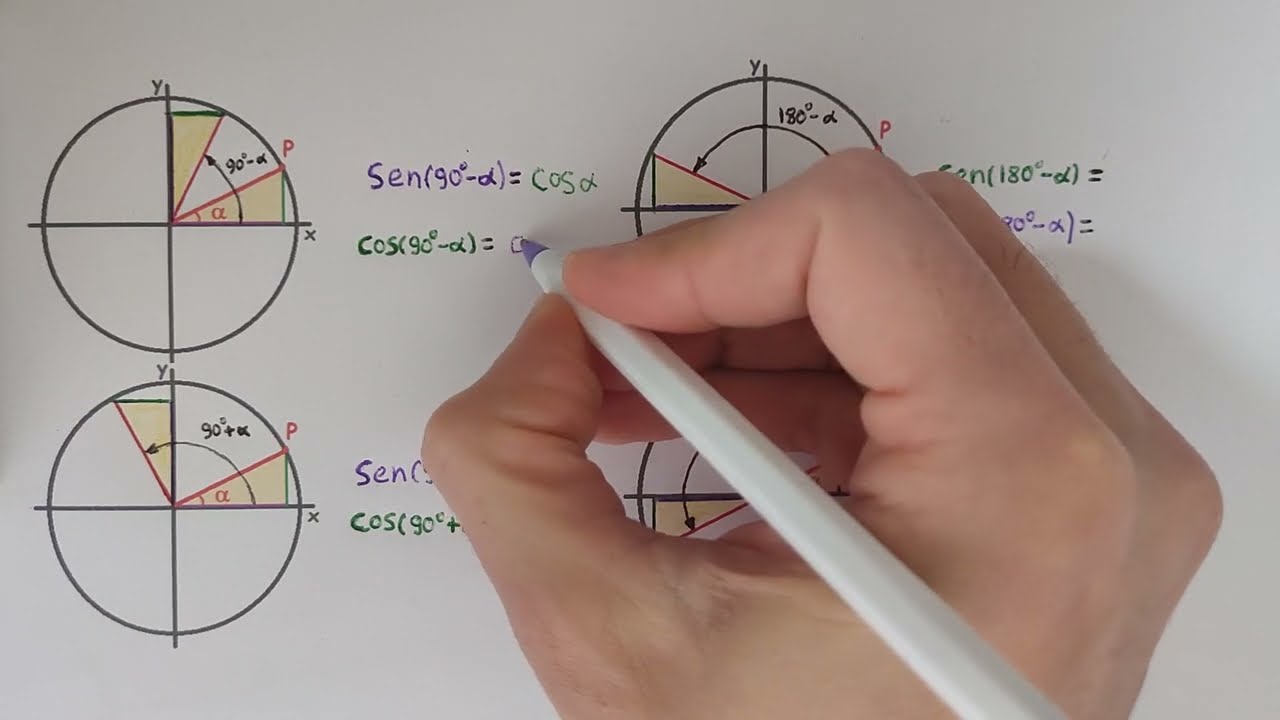 y
90°-α
P
α
x
Sen(90°-α)= cosα
cos(90°-α)=
y
180°-α
P
Sen(180°-α)=
90°+α
y
P
α
x
Sen(
cos(90°+